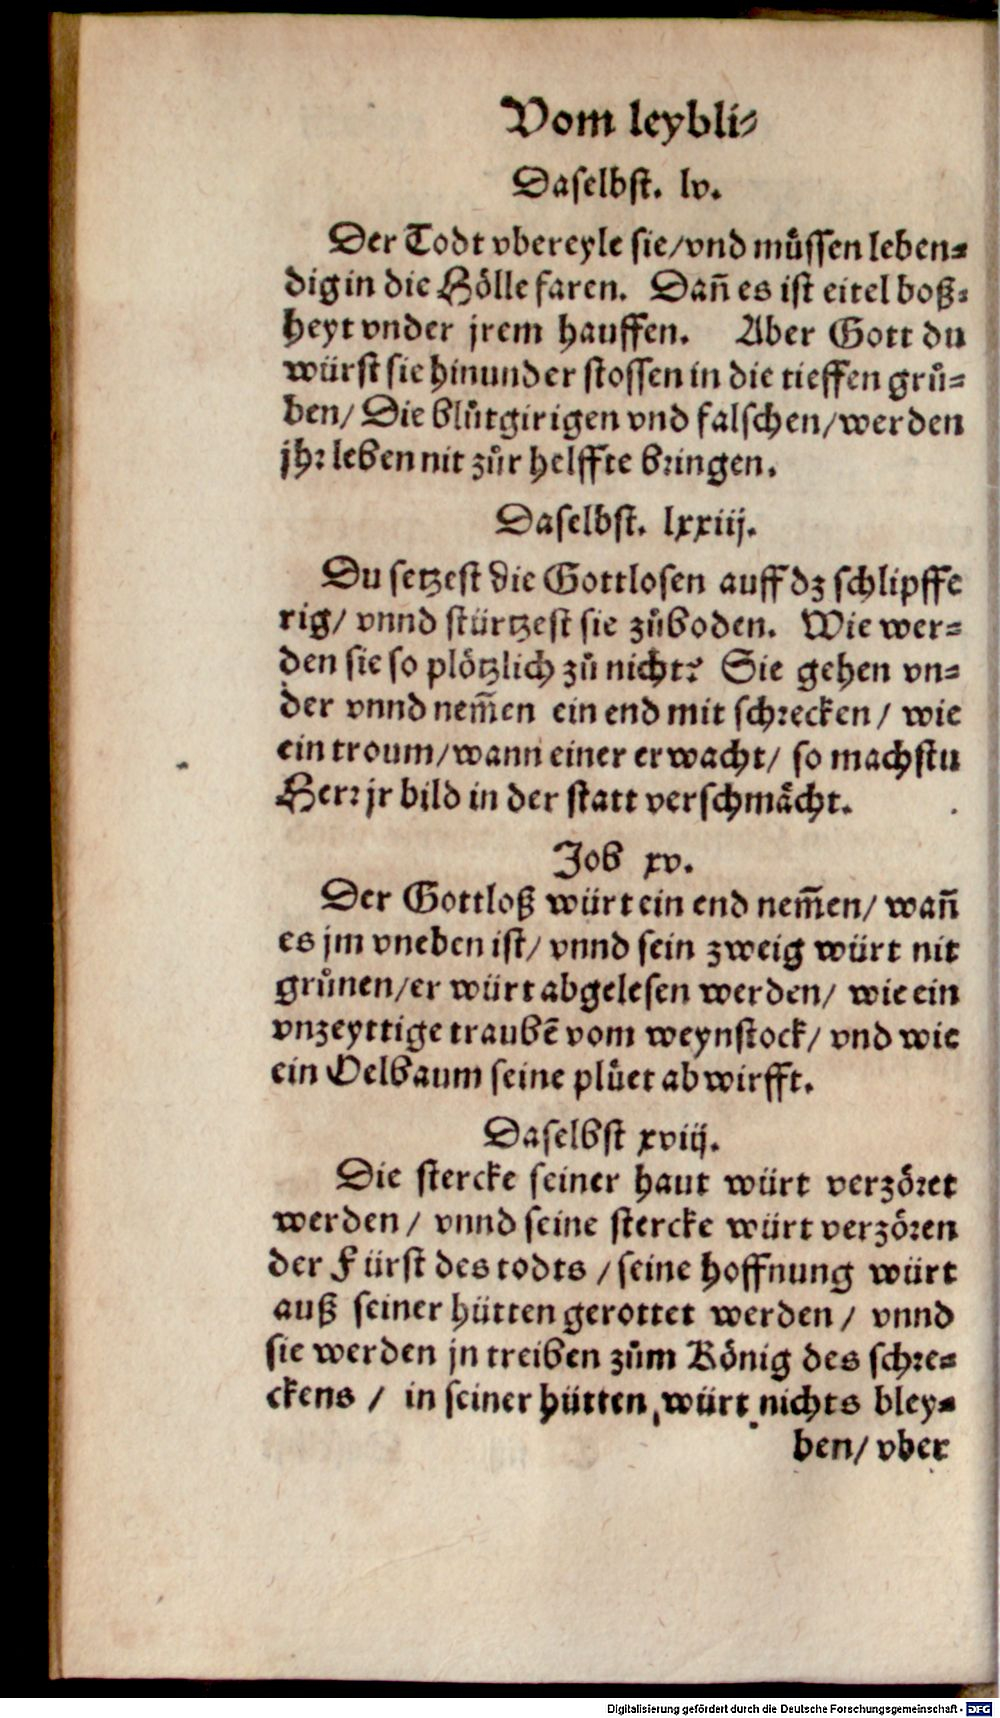 Vom leybli⸗
Daselbst. lv.
Der Todt vbereyle sie/vnd muͤssen leben⸗
dig in die Hoͤlle faren. Dañ es ist eitel boß⸗
heyt vnder jrem hauffen. Aber Gott du
würst sie hinunder stossen in die tieffen gruͦ⸗
ben/ Die bluͦtgirigen vnd falschen/werden
jhr leben nit zuͦr helffte bringen.
Daselbst. lxxiij.
Du setzest die Gottlosen auff dz schlipffe
rig/ vnnd stürtzest sie zuͦboden. Wie wer⸗
den sie so ploͤtzlich zuͦ nicht? Sie gehen vn⸗
der vnnd nem̃en ein end mit schrecken/ wie
ein troum/wann einer erwacht/ so machstu
Herr jr bild in der statt verschmaͤcht.
Job xv.
Der Gottloß würt ein end nem̃en/ wañ
es jm vneben ist/ vnnd sein zweig würt nit
gruͤnen/er würt abgelesen werden/ wie ein
vnzeyttige traubẽ vom weynstock/ vnd wie
ein Oelbaum seine pluͤet abwirfft.
Daselbst xviij.
Die stercke seiner haut würt verzoͤret
werden/ vnnd seine stercke würt verzoͤren
der Fürst des todts/seine hoffnung würt
auß seiner hütten gerottet werden/ vnnd
sie werden jn treiben zuͦm Koͤnig des schre⸗
ckens/ in seiner hütten würt nichts bley⸗
ben/ vber
Digitalisierung gefördert durch die Deutsche Forschungsgemeinschaft - DFG